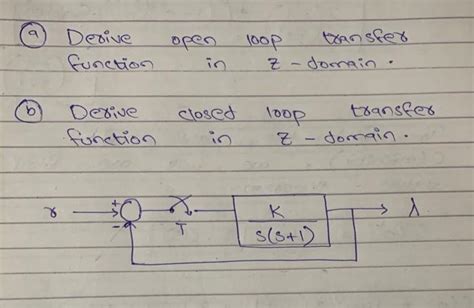 (a) Derive open loop transfer
function in z-domain.
(b) Derive closed loop transfer
function in z-domain.
r + - T K/s(s+1) λ